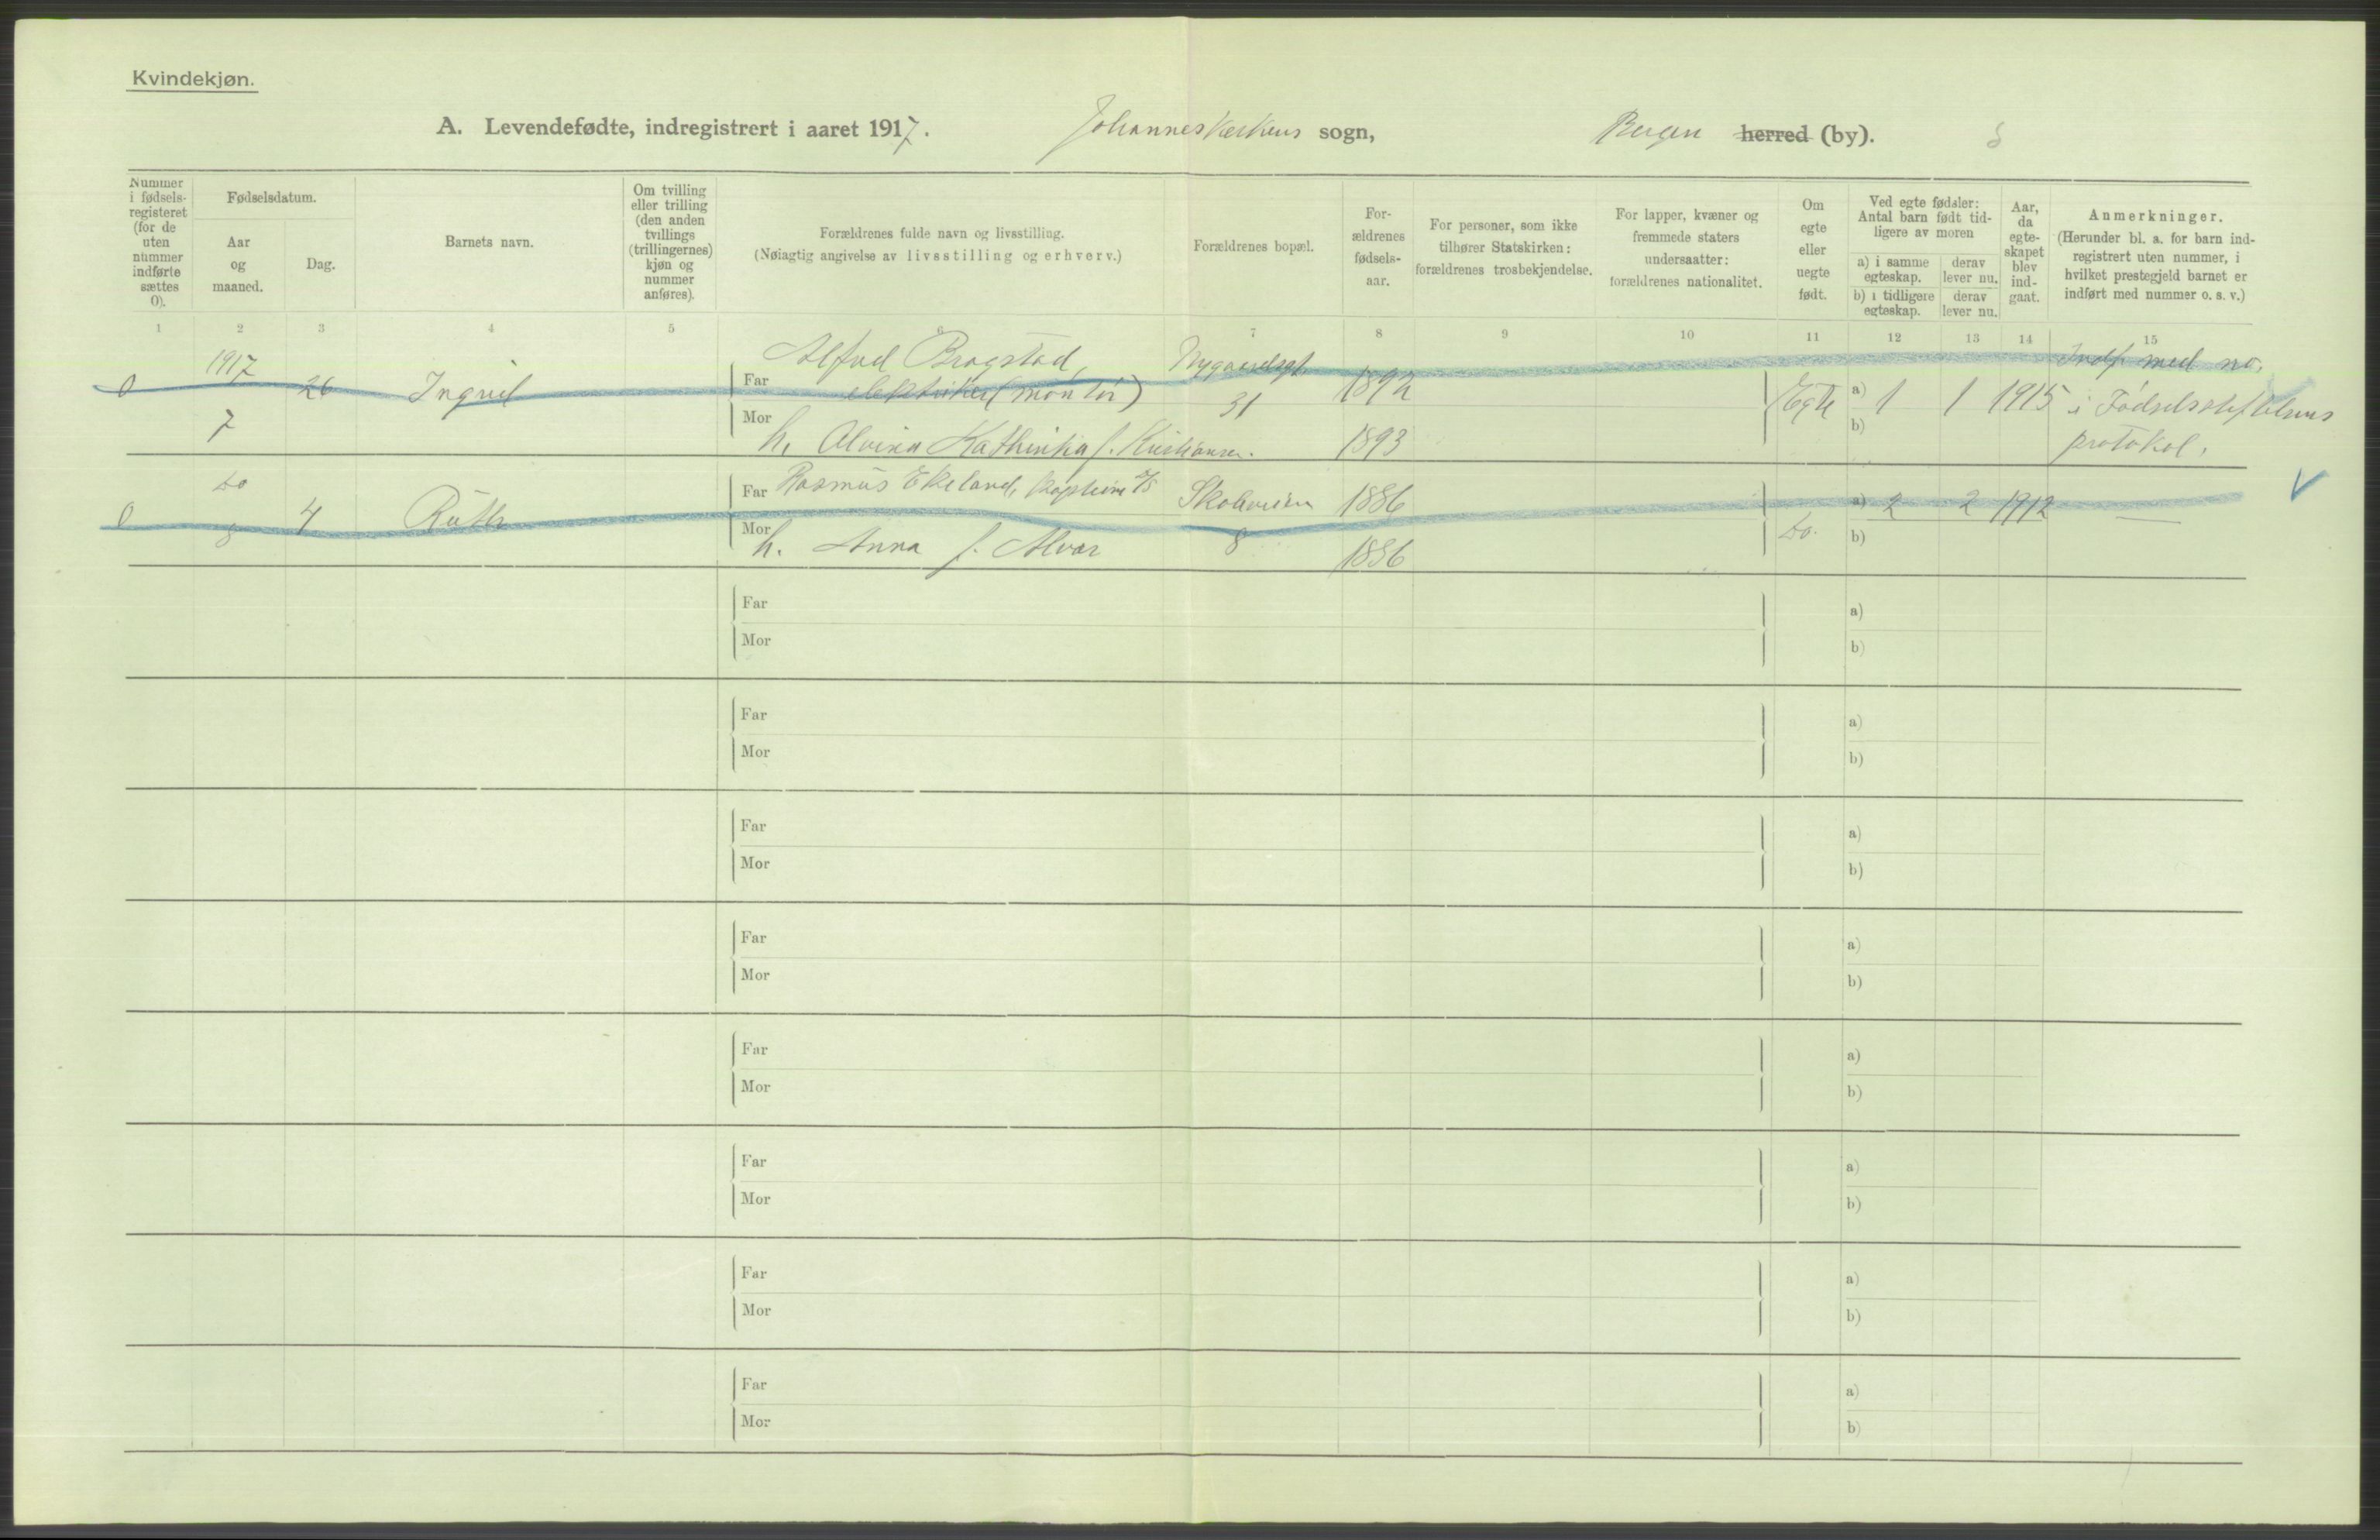 Kvindekjøn.
A. Levendefødte, indregistrert i aaret 1917. Johanneskirkens sogn, Bergen herred (by). 8
Nummer i fødsels-registeret (for de uten nummer indførte sættes 0).
Fødselsdatum.
Aar og maaned.
Dag.
Barnets navn.
Om tvilling eller trilling (den anden tvillings (trillingernes) kjøn og nummer anføres).
Forældrenes fulde navn og livsstilling.
(Nøiagtig angivelse av livsstilling og erhverv.)
Forældrenes bopæl.
For-ældrenes fødsels-aar.
For personer, som ikke tilhører Statskirken: forældrenes trosbekjendelse.
For lapper, kvæner og fremmede staters undersaatter: forældrenes nationalitet.
Om egte eller uegte født.
Ved egte fødsler: Antal barn født tid-ligere av moren
a) i samme egteskap.
derav lever nu.
b) i tidligere egteskap.
derav lever nu.
Aar, da egte-skapet blev ind-gaat.
Anmerkninger.
(Herunder bl. a. for barn ind-registrert uten nummer, i hvilket prestegjeld barnet er indført med nummer o. s. v.)
1 2 3 4 5 6 7 8 9 10 11 12 13 14 15
0 1917 7 26 Ingrid
Far Alfred Bragstad, elektriker (montør) Nygaardsgt. 31 1892
Mor h. Alvina Kathinka f. Kristiansen. 1893
Egte a) 1 1 1915
b)
Indf. med no. i Fødselsstiftelsens protokol.
0 do 8 4 Ruth
Far Rasmus Ekeland, Skoleveien 1886
Mor h. Anna f. Alver 8 1886
do. a) 2 2 1912 —
b)
Far a)
Mor b)
Far a)
Mor b)
Far a)
Mor b)
Far a)
Mor b)
Far a)
Mor b)
Far a)
Mor b)
Far a)
Mor b)
Far a)
Mor b)